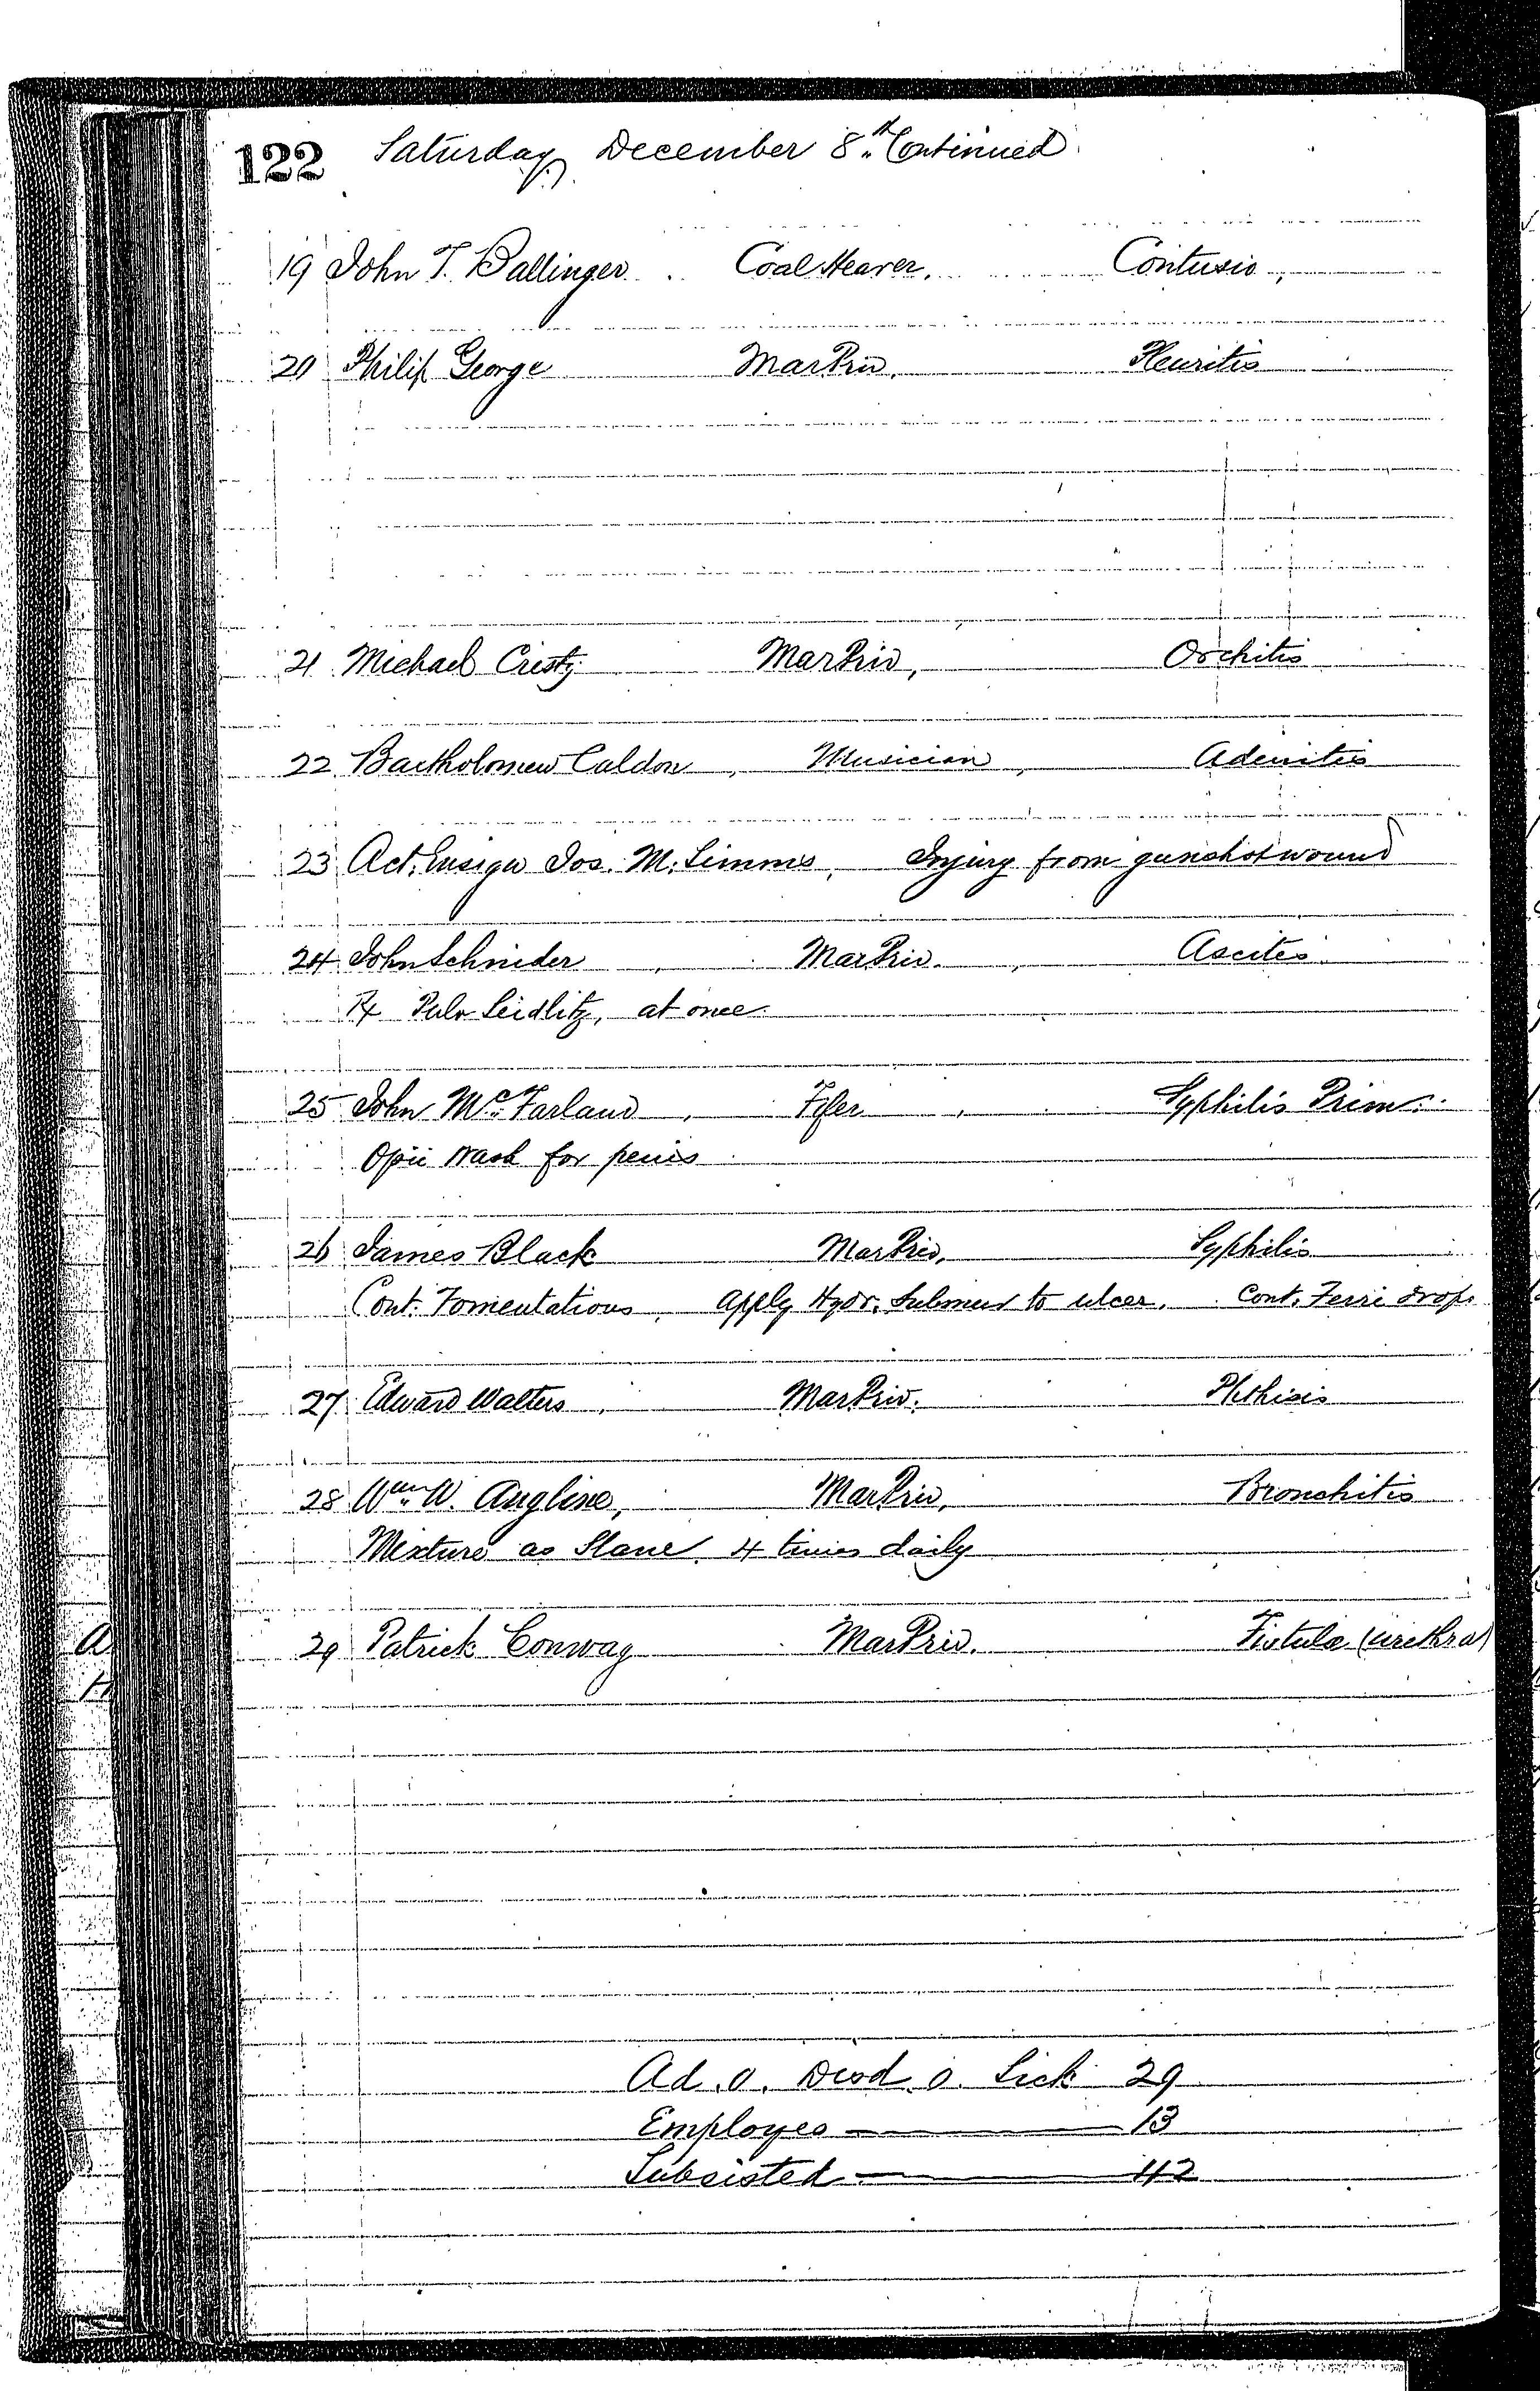 122 Saturday, December 8th. Continued
19 John T. Ballinger Coal Heaver, Contusio,
20 Philip George Mar Priv. Pleuritis
21 Michael Cristy Mar Priv, Orchitis
22 Bartholomew Caldon, Musician, Adenitis
23 Act. Ensign Jos. M. Simms, Injury from gunshot wound
24 John Schnider, Mar Priv., Ascites
Rx Pulv Seidlitz, at once
25 John McFarland, Fifer, Syphilis Prim.
Opii wash for penis
26 James Black Mar Priv. Syphilis
Cont. Fomentations, apply Hydr. Submur to ulcer. Cont. Ferri drops
27 Edward Walters, Mar Priv. Phthisis
28 Wm. W. Angline, Mar Priv, Bronchitis
Mixture as Slane 4 times daily
29 Patrick Conway Mar Priv. Fistula (urethra)
Ad. 0. Disd. 0. Sick 29
Employes — 13
Subsisted — 42